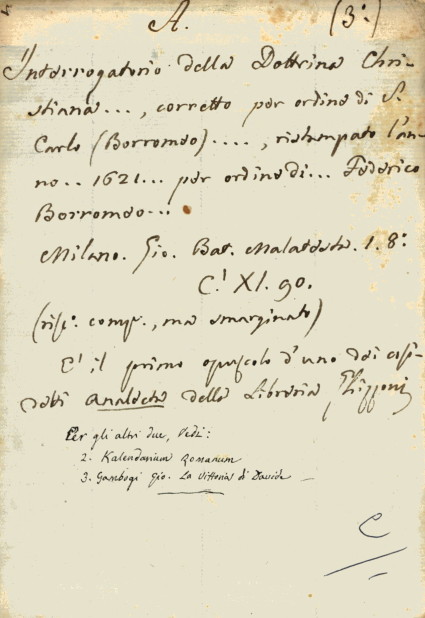 A. (3°:)
Interrogatorio della Dottrina Chri-
stiana..., corretto per ordine di S.
Carlo (Borromeo)...., ristampato l'an-
no.. 1621... per ordine di... Federico
Borromeo...
Milano. Gio. Bat. Malatesta. 1. 8°:
C.! XI. 90.
(risp.: comp., ma smarginato)
E' il primo opuscolo d'uno dei così
detti analecta della Libreria
Per gli altri due, Vedi:
2. Kalendarium Romanum
3. Gambogi Gio. La Vittoria di Davide
C